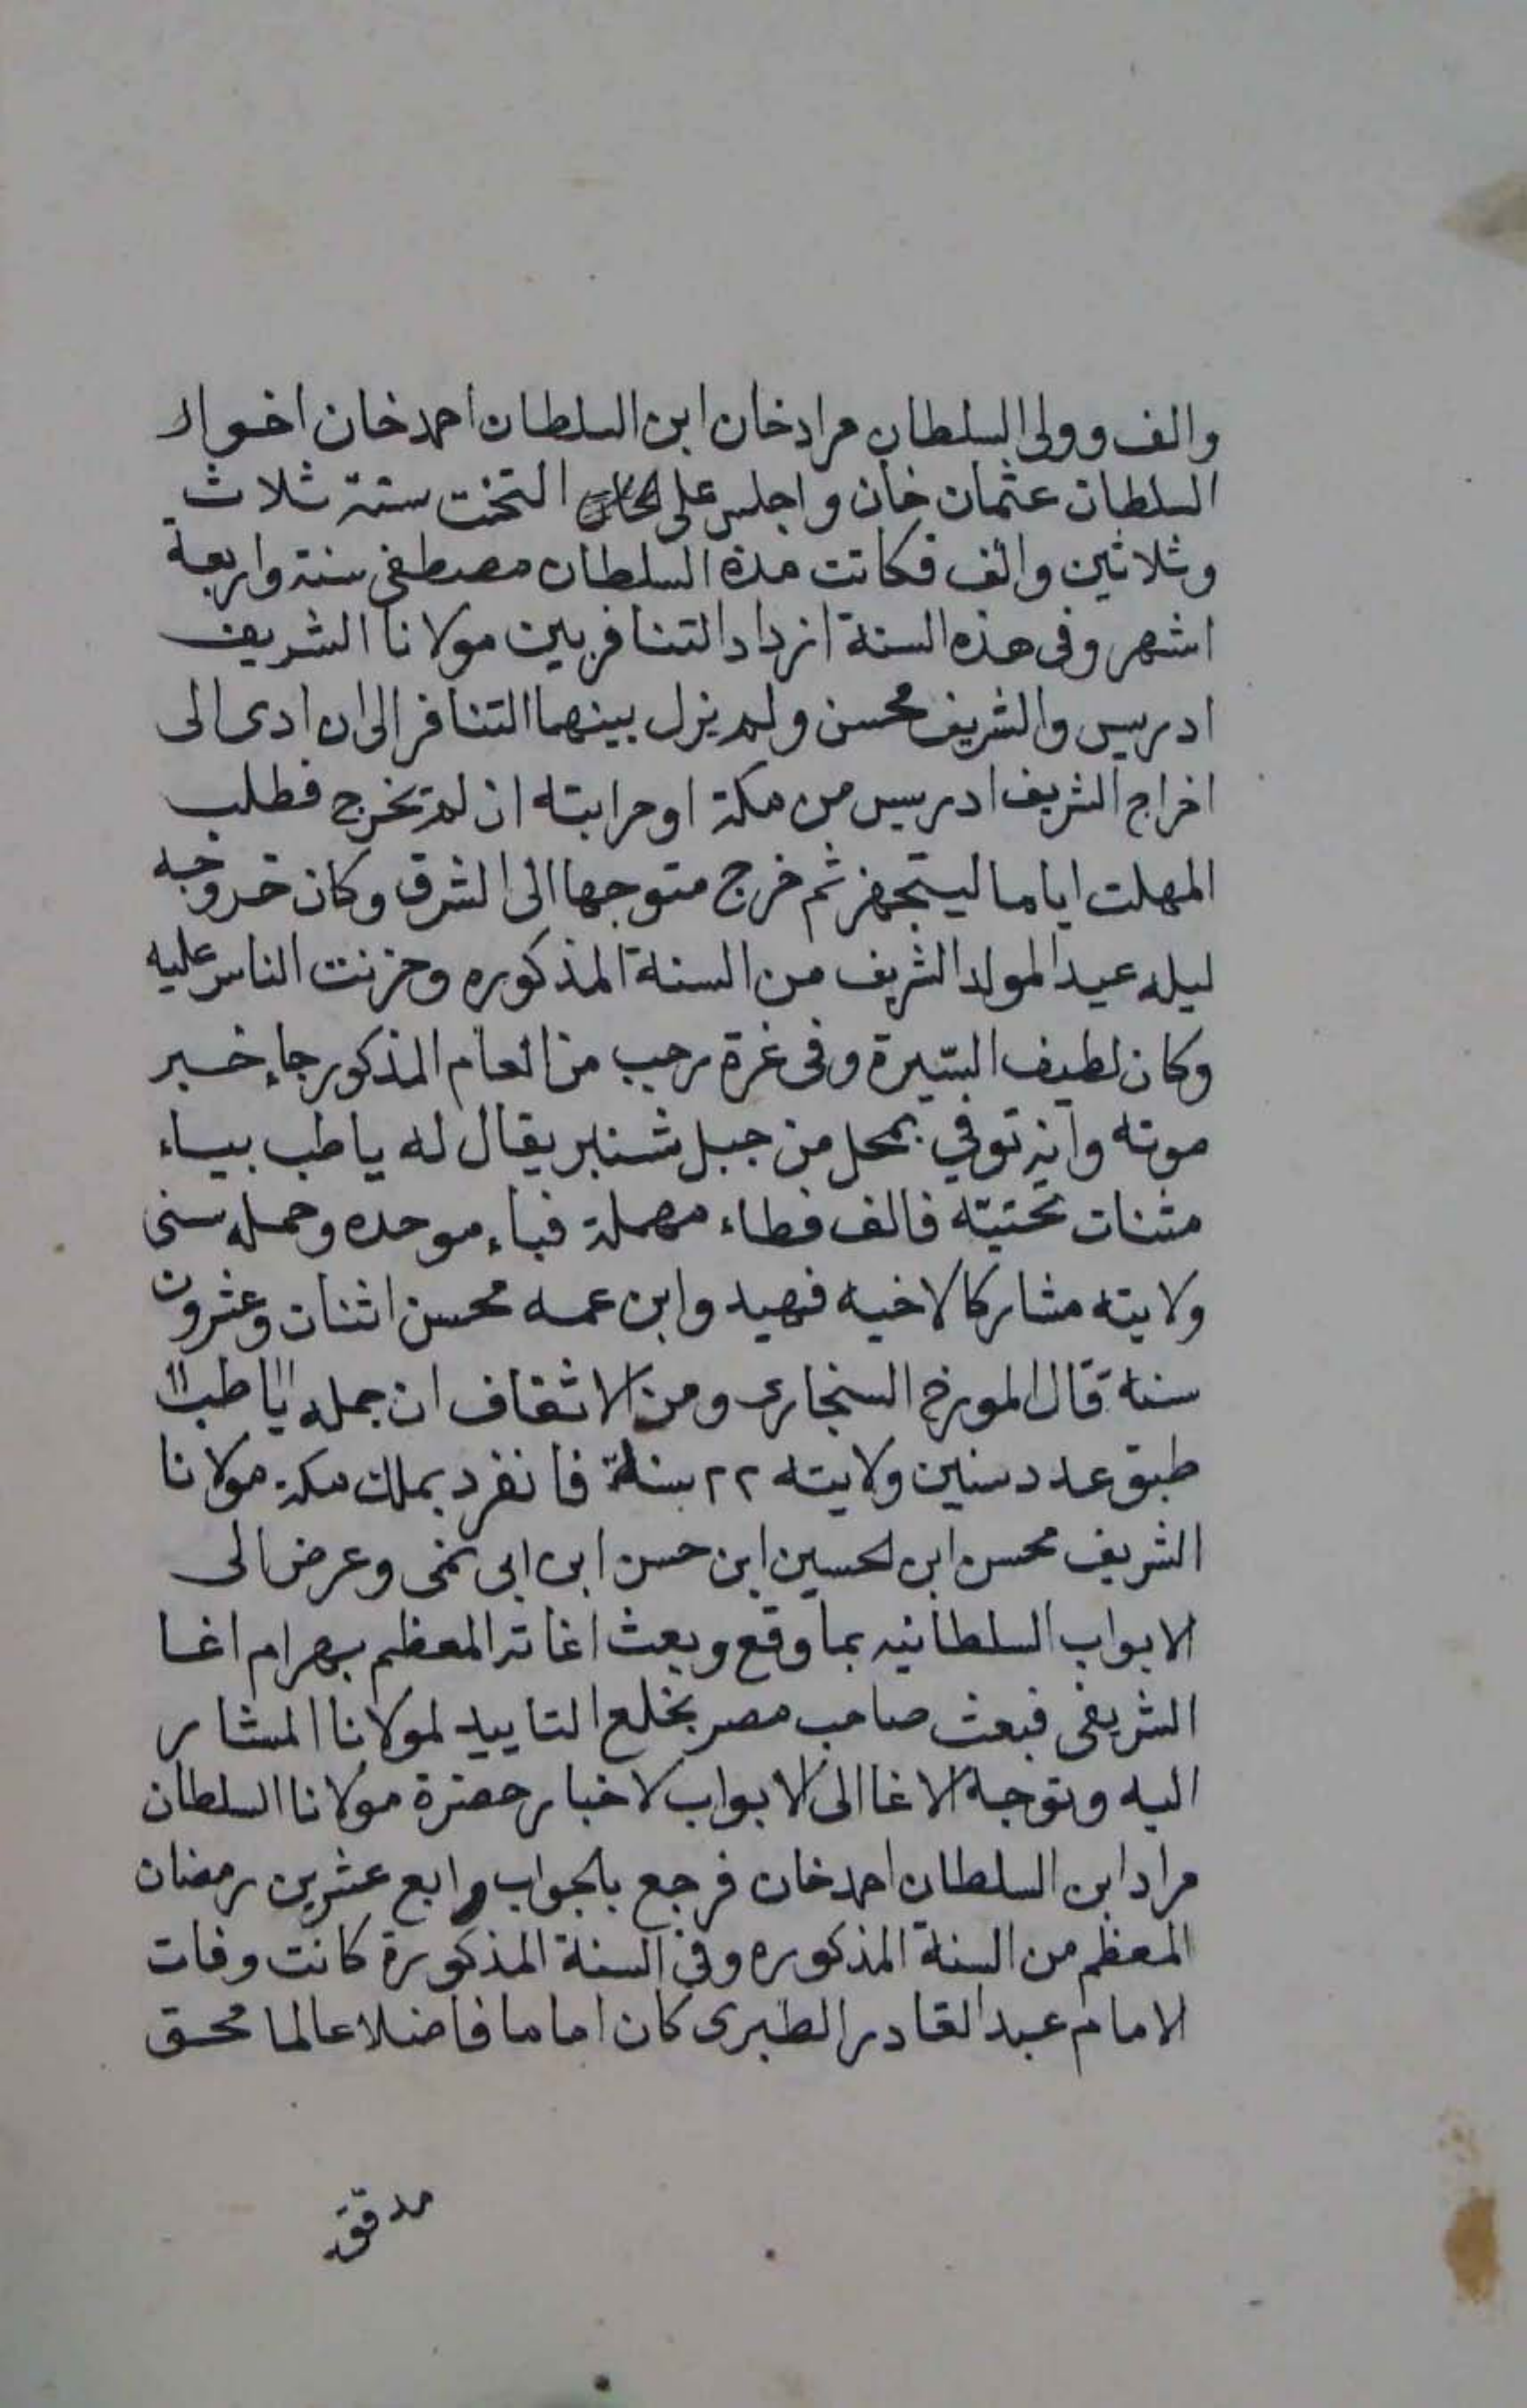 والف وولى السلطان مراد خان ابن السلطان احمد خان اخو
السلطان عثمان خان واجلس على التخت سنة ثلاث
وثلاثين والف فكانت مدة السلطان مصطفى سنة واربعة
اشهر وفى هذه السنة ازداد التنافر بين مولانا الشريف
ادريس والشريف محسن ولم يزل بينهما التنافر الى ان ادى الى
اخراج الشريف ادريس من مكة او حرابته ان لم يخرج فطلب
المهلت اياما ليتجهز ثم خرج متوجها الى الشرق وكان خروجه
ليله عيد المولد الشريف من السنة المذكوره وحزنت الناس عليه
وكان لطيف السيرة وفى غرة رجب من العام المذكور جاء خبر
موته وانه توفي بمحل من جبل شنبر يقال له ياطب بياء
مثنات تحتيته فالف فطاء مهملة فباء موحده وحمله سنى
ولايته مشاركا لاخيه فهيد وابن عمه محسن اثنات وعشرون
سنة قال المورخ السنجارى ومن الاتفاف ان جمله "ياطب"
طبق عدد سنين ولايته ٢٢ سنة فانفرد بملك مكة مولانا
الشريف محسن ابن الحسين ابن حسن ابن ابى نمى وعرض الى
الابواب السلطانيه بما وقع وبعث اغاته المعظم بهرام اغا
الشريفى فبعث صاحب مصر بخلع التاييد لمولانا المشار
اليه وتوجه الاغا الى الابواب لاخبار حضرة مولانا السلطان
مراد ابن السلطان احمد خان فرجع بالجواب رابع عشرين رمضان
المعظم من السنة المذكوره وفى السنة المذكورة كانت وفات
الامام عبد القادر الطبرى كان اماما فاضلا عالما محق
مدقق